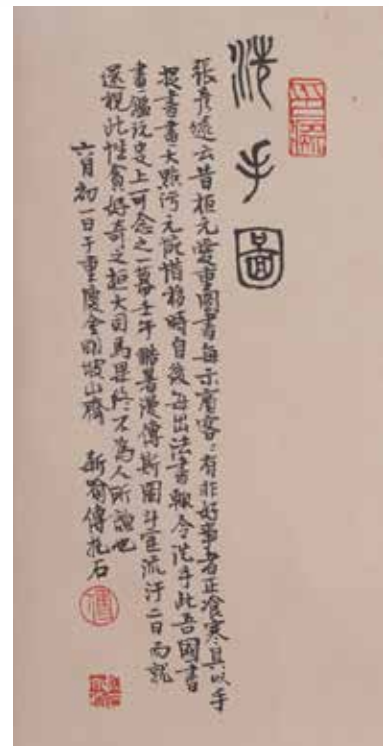 洗手圖
張彥遠云昔桓元愛重圖書每示賓客:有非好事者正飡寒具以手
捉書畫大點污元惋惜移時自後每出法書輒令洗手此吾國書
畫鑑玩史上可念之一幕壬午酷暑漫傳斯圖斗室流汗二日而就
還視此性貪好奇之桓大司馬畢終不為人所諒也
六月初一日于重慶金剛坡山齋 新喻傅抱石
傅